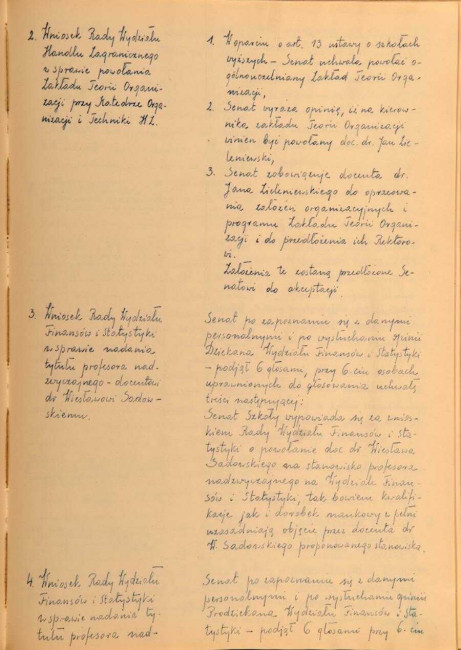 2. Wniosek Rady Wydziału
Handlu Zagranicznego
w sprawie powołania
Zakładu Teorii Organi-
zacji przy Katedrze Orga-
nizacji i Techniki H.Z.
1. W oparciu o art. 13 ustawy o szkołach
wyższych - Senat uchwala powołać o-
gólnouczelniany Zakład Teorii Orga-
nizacji,
2. Senat wyraża opinię, iż na kierow-
nika zakładu Teorii Organizacji
winien być powołany doc. dr. Jan Zie-
leniewski,
3. Senat zobowiązuje docenta dr.
Jana Zieleniewskiego do opracowa-
nia założeń organizacyjnych i
programu Zakładu Teorii Organi-
zacji i do przedłożenia ich Rektoro-
wi.
Założenia te zostaną przedłożone Se-
natowi do akceptacji.
3. Wniosek Rady Wydziału
Finansów i Statystyki
w sprawie nadania
tytułu profesora nad-
zwyczajnego - docentowi
dr Wiesławowi Sadow-
skiemu.
Senat po zapoznaniu się z danymi
personalnymi i po wysłuchaniu opinii
Dziekana Wydziału Finansów i Statystyki
- podjął 6 głosami, przy 6-ciu osobach
uprawnionych do głosowania uchwałę
treści następującej:
Senat Szkoły wypowiada się za wnios-
kiem Rady Wydziału Finansów i Sta-
tystyki o powołanie doc. dr Wiesława
Sadowskiego na stanowisko profesora
nadzwyczajnego na Wydziale Finan-
sów i Statystyki, tak bowiem kwalifi-
kacje jak i dorobek naukowy w pełni
uzasadniają objęcie przez docenta dr
W. Sadowskiego proponowanego stanowiska.
4. Wniosek Rady Wydziału
Finansów i Statystyki
w sprawie nadania ty-
tułu profesora nad-
Senat po zapoznaniu się z danymi
personalnymi i po wysłuchaniu opinii
Prodziekana Wydziału Finansów i Sta-
tystyki - podjął 6 głosami przy 6-ciu